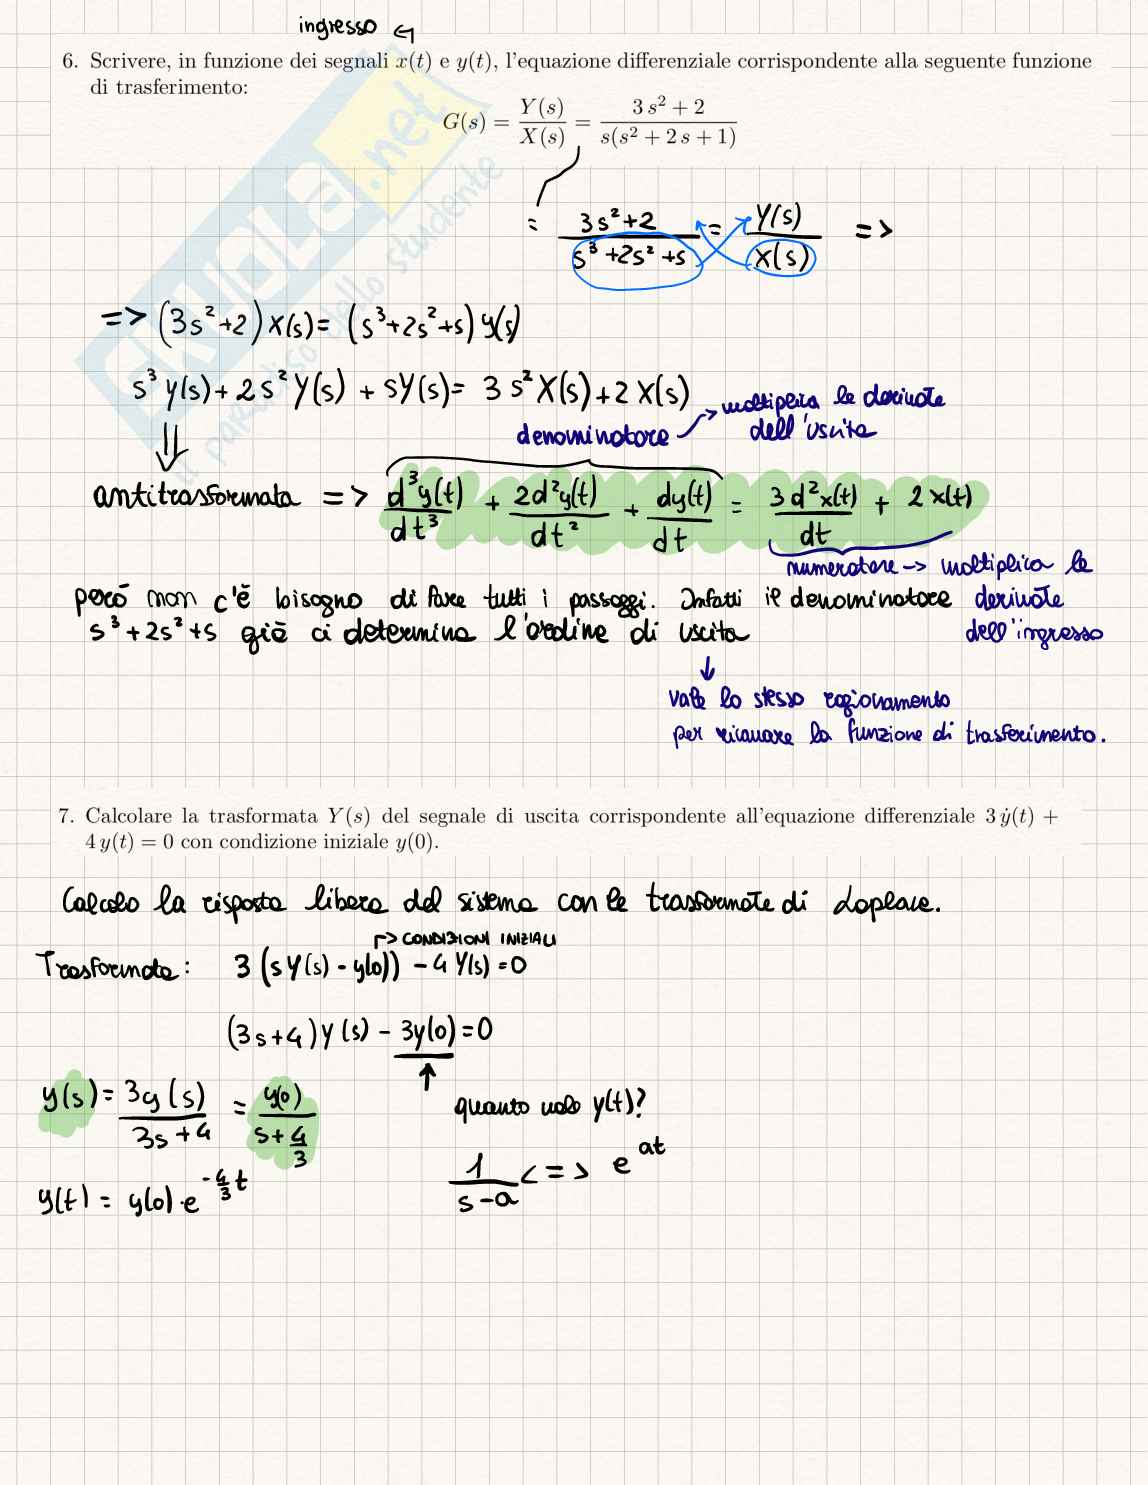 ingresso
6. Scrivere, in funzione dei segnali x(t) e y(t), l'equazione differenziale corrispondente alla seguente funzione
di trasferimento:
G(s) = Y(s)/X(s) = (3 s² + 2)/(s(s² + 2 s + 1))
= (3s²+2)/(s³+2s²+s) = Y(s)/X(s) =>
=> (3s²+2) X(s) = (s³+2s²+s) Y(s)
s³ Y(s) + 2s² Y(s) + sY(s) = 3 s² X(s) + 2 X(s)
denominatore -> moltiplica le derivate
dell'uscita
antitrasformata => d³y(t)/dt³ + 2d²y(t)/dt² + dy(t)/dt = 3d²x(t)/dt + 2x(t)
numeratore -> moltiplica le
derivate
dell'ingresso
però non c'è bisogno di fare tutti i passaggi. Infatti il denominatore
s³+2s²+s già ci determina l'ordine di uscita
↓
vale lo stesso ragionamento
per ricavare la funzione di trasferimento.
SKUOLA.net
il paradiso dello studente
7. Calcolare la trasformata Y(s) del segnale di uscita corrispondente all'equazione differenziale 3 ẏ(t) +
4 y(t) = 0 con condizione iniziale y(0).
Calcolo la risposta libera del sistema con le trasformate di Laplace.
-> CONDIZIONI INIZIALI
Trasformata: 3 (sY(s) - y(0)) - 4 Y(s) = 0
(3s+4) Y(s) - 3y(0) = 0
y(s) = 3y(s)/(3s+4) = y(0)/(s+4/3)
quanto vale y(t)?
1/(s-a) <=> e^at
y(t) = y(0)·e^(-4/3 t)